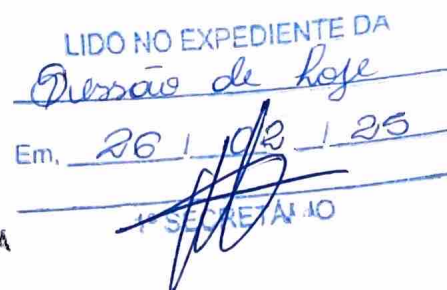 LIDO NO EXPEDIENTE DA
Sessão de hoje
Em, 26 / 02 / 25
1º SECRETÁRIO
A